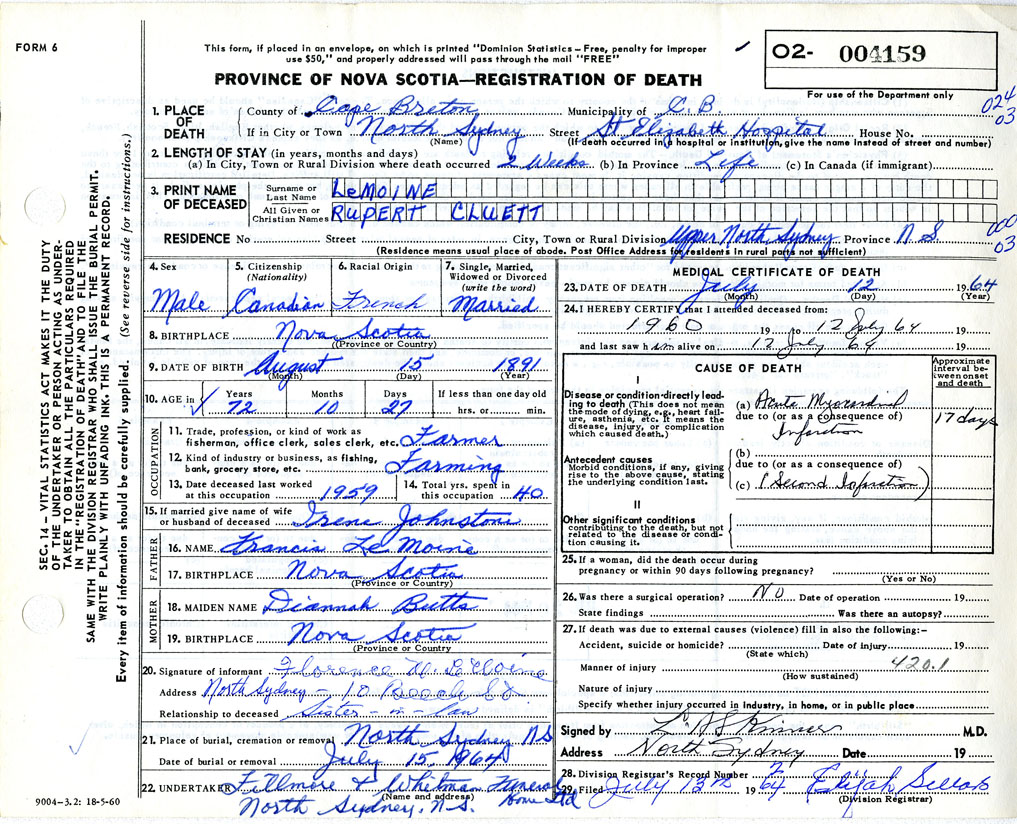 FORM 6
This form, if placed in an envelope, on which is printed "Dominion Statistics — Free, penalty for improper
use $50," and properly addressed will pass through the mail "FREE"
PROVINCE OF NOVA SCOTIA—REGISTRATION OF DEATH
O2- 004159
For use of the Department only
024
03
1. PLACE OF DEATH County of Cape Breton Municipality of C.B
If in City or Town North Sydney Street St Elizabeth Hospital House No.
(Name) (If death occurred in a hospital or institution, give the name instead of street and number)
2. LENGTH OF STAY (in years, months and days)
(a) In City, Town or Rural Division where death occurred 2 Weeks (b) In Province Life (c) In Canada (if immigrant)
3. PRINT NAME OF DECEASED Surname or Last Name LeMOINE
All Given or Christian Names RUPERT CLUETT
RESIDENCE No Street City, Town or Rural Division Upper North Sydney Province N S
000
03
(Residence means usual place of abode. Post Office Address for residents in rural parts not sufficient)
4. Sex Male
5. Citizenship (Nationality) Canadian
6. Racial Origin French
7. Single, Married, Widowed or Divorced (write the word) Married
8. BIRTHPLACE Nova Scotia
(Province or Country)
9. DATE OF BIRTH August 15 1891
(Month) (Day) (Year)
10. AGE in Years 72 Months 10 Days 27 If less than one day old hrs. or min.
OCCUPATION
11. Trade, profession, or kind of work as
fisherman, office clerk, sales clerk, etc. Farmer
12. Kind of industry or business, as fishing,
bank, grocery store, etc. Farming
13. Date deceased last worked at this occupation 1959
14. Total yrs. spent in this occupation 40
15. If married give name of wife
or husband of deceased Irene Johnstone
FATHER
16. NAME Francis Le Moine
17. BIRTHPLACE Nova Scotia
(Province or Country)
MOTHER
18. MAIDEN NAME Diannah Butts
19. BIRTHPLACE Nova Scotia
(Province or Country)
20. Signature of informant Florence
Address North Sydney - 10 Beech St
Relationship to deceased Sister-in-law
21. Place of burial, cremation or removal North Sydney NS
Date of burial or removal July 15, 1964
22. UNDERTAKER Fillmore & Whitman Funeral Home Ltd
(Name and address)
North Sydney, N.S.
MEDICAL CERTIFICATE OF DEATH
23. DATE OF DEATH July 12 1964
(Month) (Day) (Year)
24. I HEREBY CERTIFY that I attended deceased from:
1960 19 to 12 July 64 19
and last saw him alive on 12 July 64 19
CAUSE OF DEATH
Approximate interval between onset and death
I
Disease or condition directly leading to death (This does not mean the mode of dying, e.g., heart failure, asthenia, etc. It means the disease, injury, or complication which caused death.)
(a) Acute Myocardial
due to (or as a consequence of)
Infarction
17 days
Antecedent causes
Morbid conditions, if any, giving rise to the above cause, stating the underlying condition last.
(b)
due to (or as a consequence of)
(c) (Second Infarction)
II
Other significant conditions
contributing to the death, but not related to the disease or condition causing it.
25. If a woman, did the death occur during
pregnancy or within 90 days following pregnancy?
(Yes or No)
26. Was there a surgical operation? NO Date of operation 19
State findings Was there an autopsy?
27. If death was due to external causes (violence) fill in also the following:—
Accident, suicide or homicide? Date of injury 19
(State which)
Manner of injury 420.1
(How sustained)
Nature of injury
Specify whether injury occurred in industry, in home, or in public place
Signed by M.D.
Address North Sydney Date 19
28. Division Registrar's Record Number
29. Filed July 13th 1964 Elijah
(Division Registrar)
SEC. 14 – VITAL STATISTICS ACT MAKES IT THE DUTY
OF THE UNDERTAKER OR PERSON ACTING AS UNDER-
TAKER TO OBTAIN ALL THE PARTICULARS REQUIRED
IN THE "REGISTRATION OF DEATH" AND TO FILE THE
SAME WITH THE DIVISION REGISTRAR WHO SHALL ISSUE THE BURIAL PERMIT.
WRITE PLAINLY WITH UNFADING INK. THIS IS A PERMANENT RECORD.
Every item of information should be carefully supplied. (See reverse side for instructions.)
9004—3.2: 18-5-60